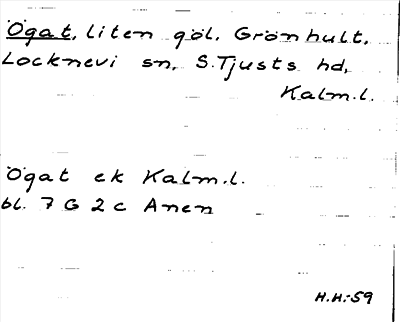 Ögat, liten göl, Grönhult,
Locknevi sn, S. Tjusts hd,
Kalm.l.
Ögat ek Kalm.l.
bl. 7 G 2 c Anen
H.H:-59